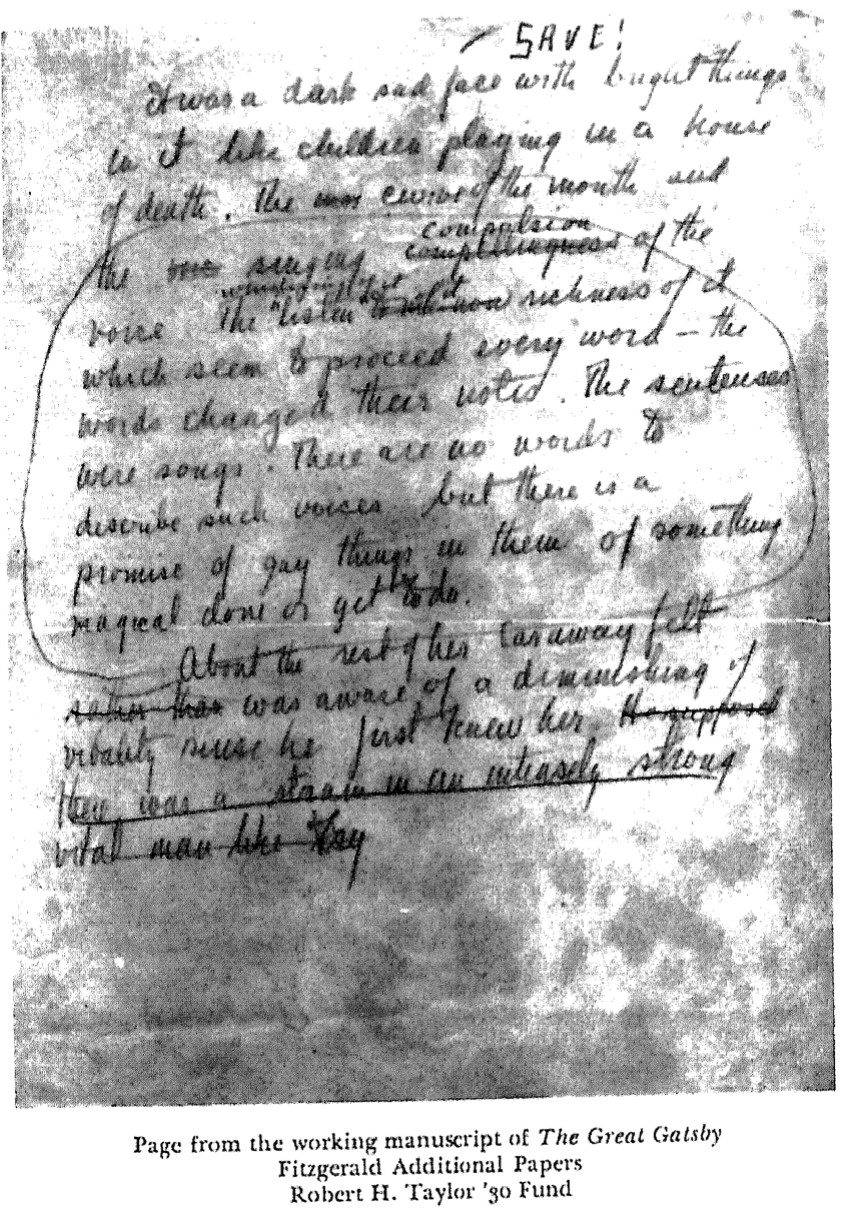 SAVE!
It was a dark sad face with bright things
in it like children playing in a house
of death. The curve of the mouth and
compulsion
the singing complllingness of the
voice The "listen" sickness of it
which seem to proceed every word – the
words changed their notes. The sentenses
were songs. There are no words to
describe such voices but there is a
promise of gay things in them of something
magical done or get to do.
About the rest of her Caraway felt
rather than was aware of a diminishing of
vitality since he first knew her. He supposed
there was a strain in an intensely strong
vital man like
Page from the working manuscript of The Great Gatsby
Fitzgerald Additional Papers
Robert H. Taylor '30 Fund